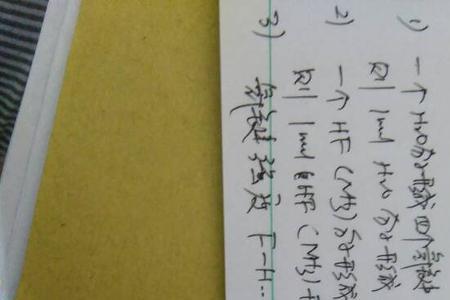 1) 一个H₂O分子形成四个氢键
则 1mol H₂O分子形成
2) 一个HF(NH₃)分子形成
则 1mol 个HF(NH₃)
3) 氢键强度 F—H…